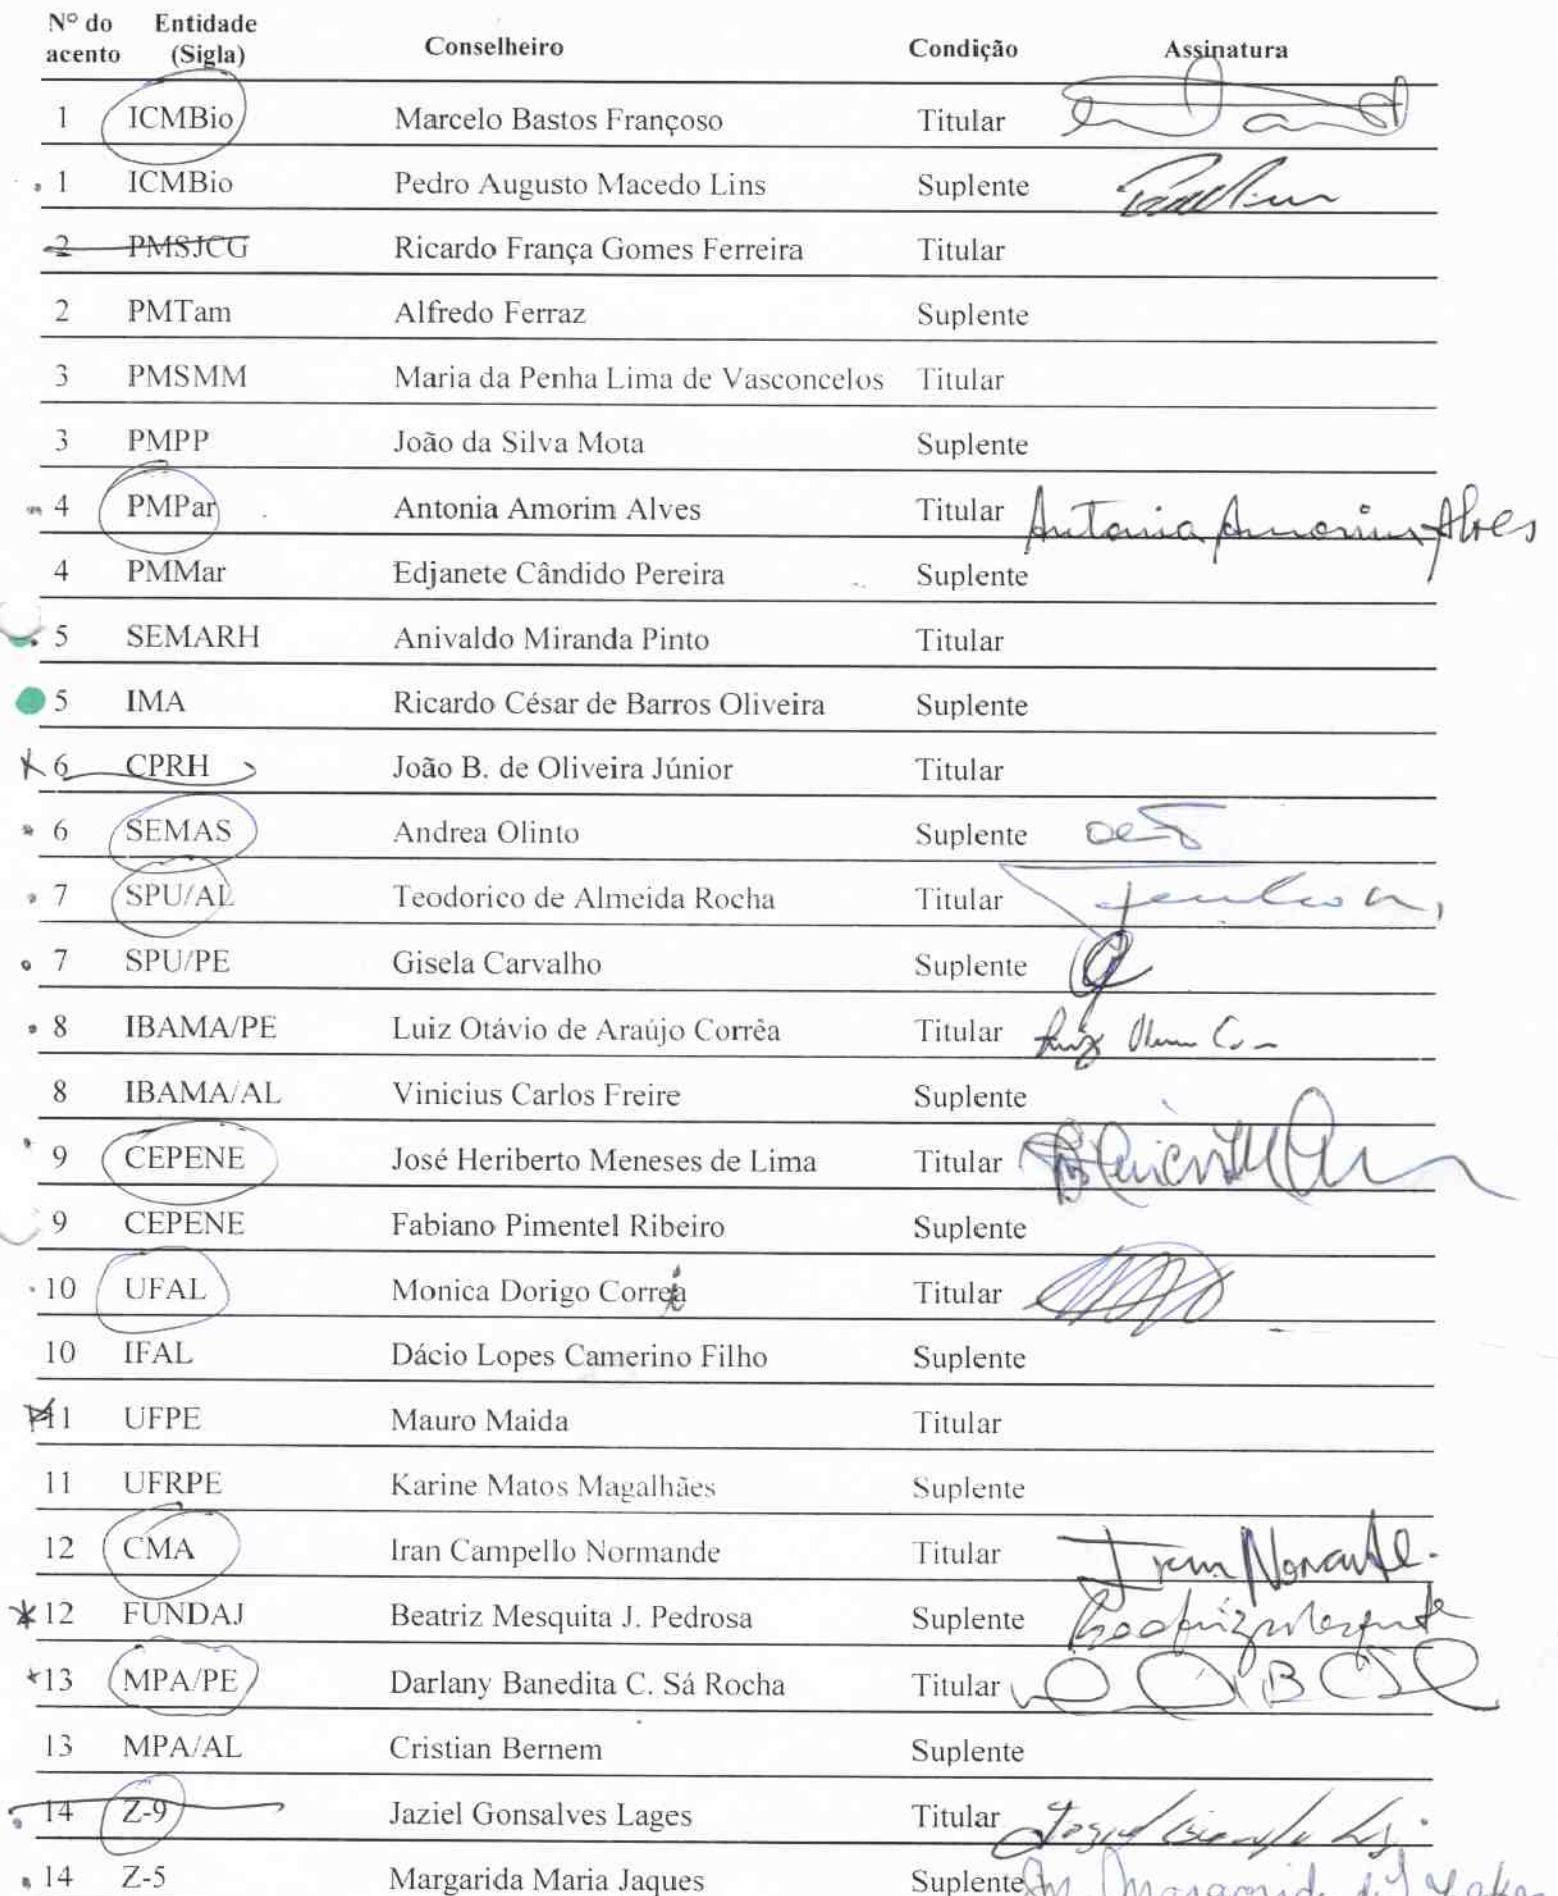 Nº do acento Entidade (Sigla) Conselheiro Condição Assinatura
1 ICMBio Marcelo Bastos Françoso Titular
1 ICMBio Pedro Augusto Macedo Lins Suplente
2 PMSJCG Ricardo França Gomes Ferreira Titular
2 PMTam Alfredo Ferraz Suplente
3 PMSMM Maria da Penha Lima de Vasconcelos Titular
3 PMPP João da Silva Mota Suplente
4 PMPar Antonia Amorim Alves Titular Antonia Amorim Alves
4 PMMar Edjanete Cândido Pereira Suplente
5 SEMARH Anivaldo Miranda Pinto Titular
5 IMA Ricardo César de Barros Oliveira Suplente
6 CPRH João B. de Oliveira Júnior Titular
6 SEMAS Andrea Olinto Suplente
7 SPU/AL Teodorico de Almeida Rocha Titular
7 SPU/PE Gisela Carvalho Suplente
8 IBAMA/PE Luiz Otávio de Araújo Corrêa Titular Luiz
8 IBAMA/AL Vinicius Carlos Freire Suplente
9 CEPENE José Heriberto Meneses de Lima Titular
9 CEPENE Fabiano Pimentel Ribeiro Suplente
10 UFAL Monica Dorigo Correia Titular
10 IFAL Dácio Lopes Camerino Filho Suplente
11 UFPE Mauro Maida Titular
11 UFRPE Karine Matos Magalhães Suplente
12 CMA Iran Campello Normande Titular Iran Normande
12 FUNDAJ Beatriz Mesquita J. Pedrosa Suplente Beatriz Mesquita
13 MPA/PE Darlany Banedita C. Sá Rocha Titular
13 MPA/AL Cristian Bernem Suplente
14 Z-9 Jaziel Gonsalves Lages Titular
14 Z-5 Margarida Maria Jaques Suplente